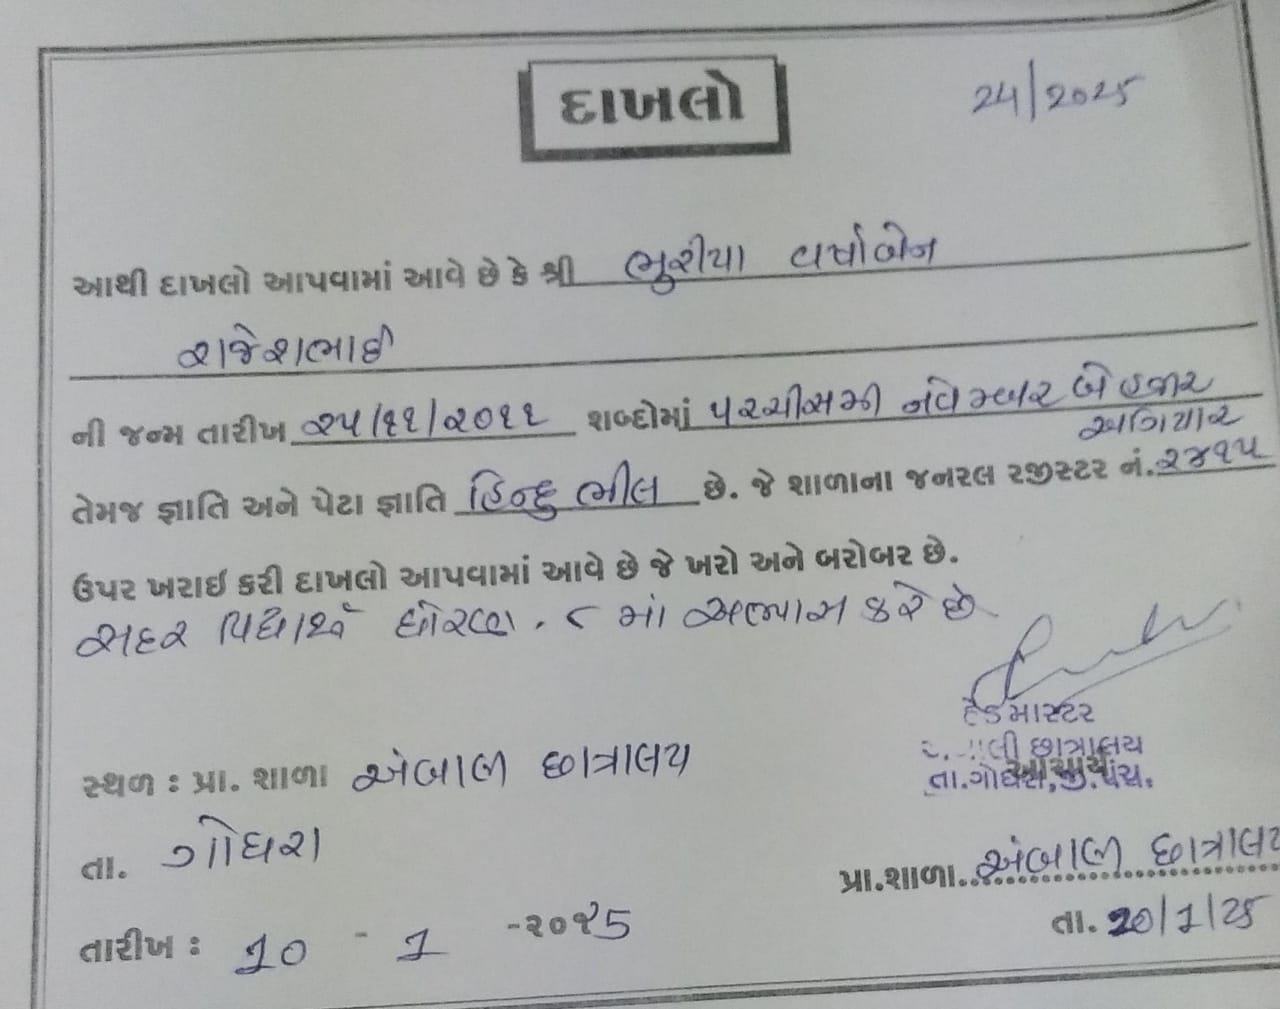 દાખલો
24/2025
આથી દાખલો આપવામાં આવે છે કે શ્રી ભુરીયા વર્ષાબેન
રાજેશભાઈ
ની જન્મ તારીખ ૨૫/૧૧/૨૦૧૧ શબ્દોમાં પચ્ચીસમી નવેમ્બર બે હજાર
અગિયાર
તેમજ જ્ઞાતિ અને પેટા જ્ઞાતિ હિન્દુ ભીલ છે. જે શાળાના જનરલ રજીસ્ટર નં. ૨૪૧૫
ઉપર ખરાઇ કરી દાખલો આપવામાં આવે છે જે ખરો અને બરોબર છે.
સદર વિદ્યાર્થી ધોરણ. ૮ માં અભ્યાસ કરે છે
હેડમાસ્તર
છાત્રાલય
સ્થળ : પ્રા. શાળા એબાલી છાત્રાલય
આચાર્ય
તા.ગોધરા,જી.પંચ.
તા. ગોધરા
પ્રા.શાળા. એબાલી છાત્રાલય
તારીખ : 10 - 1 -૨૦૨5
તા. 20/1/25